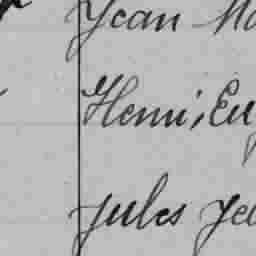 Jean Ma
Henri, Eu
Jules Je